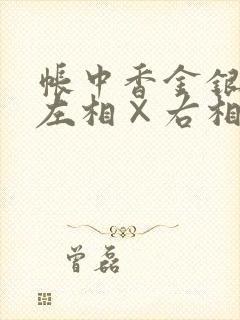 帐中香金银
左相×右相
曾磊